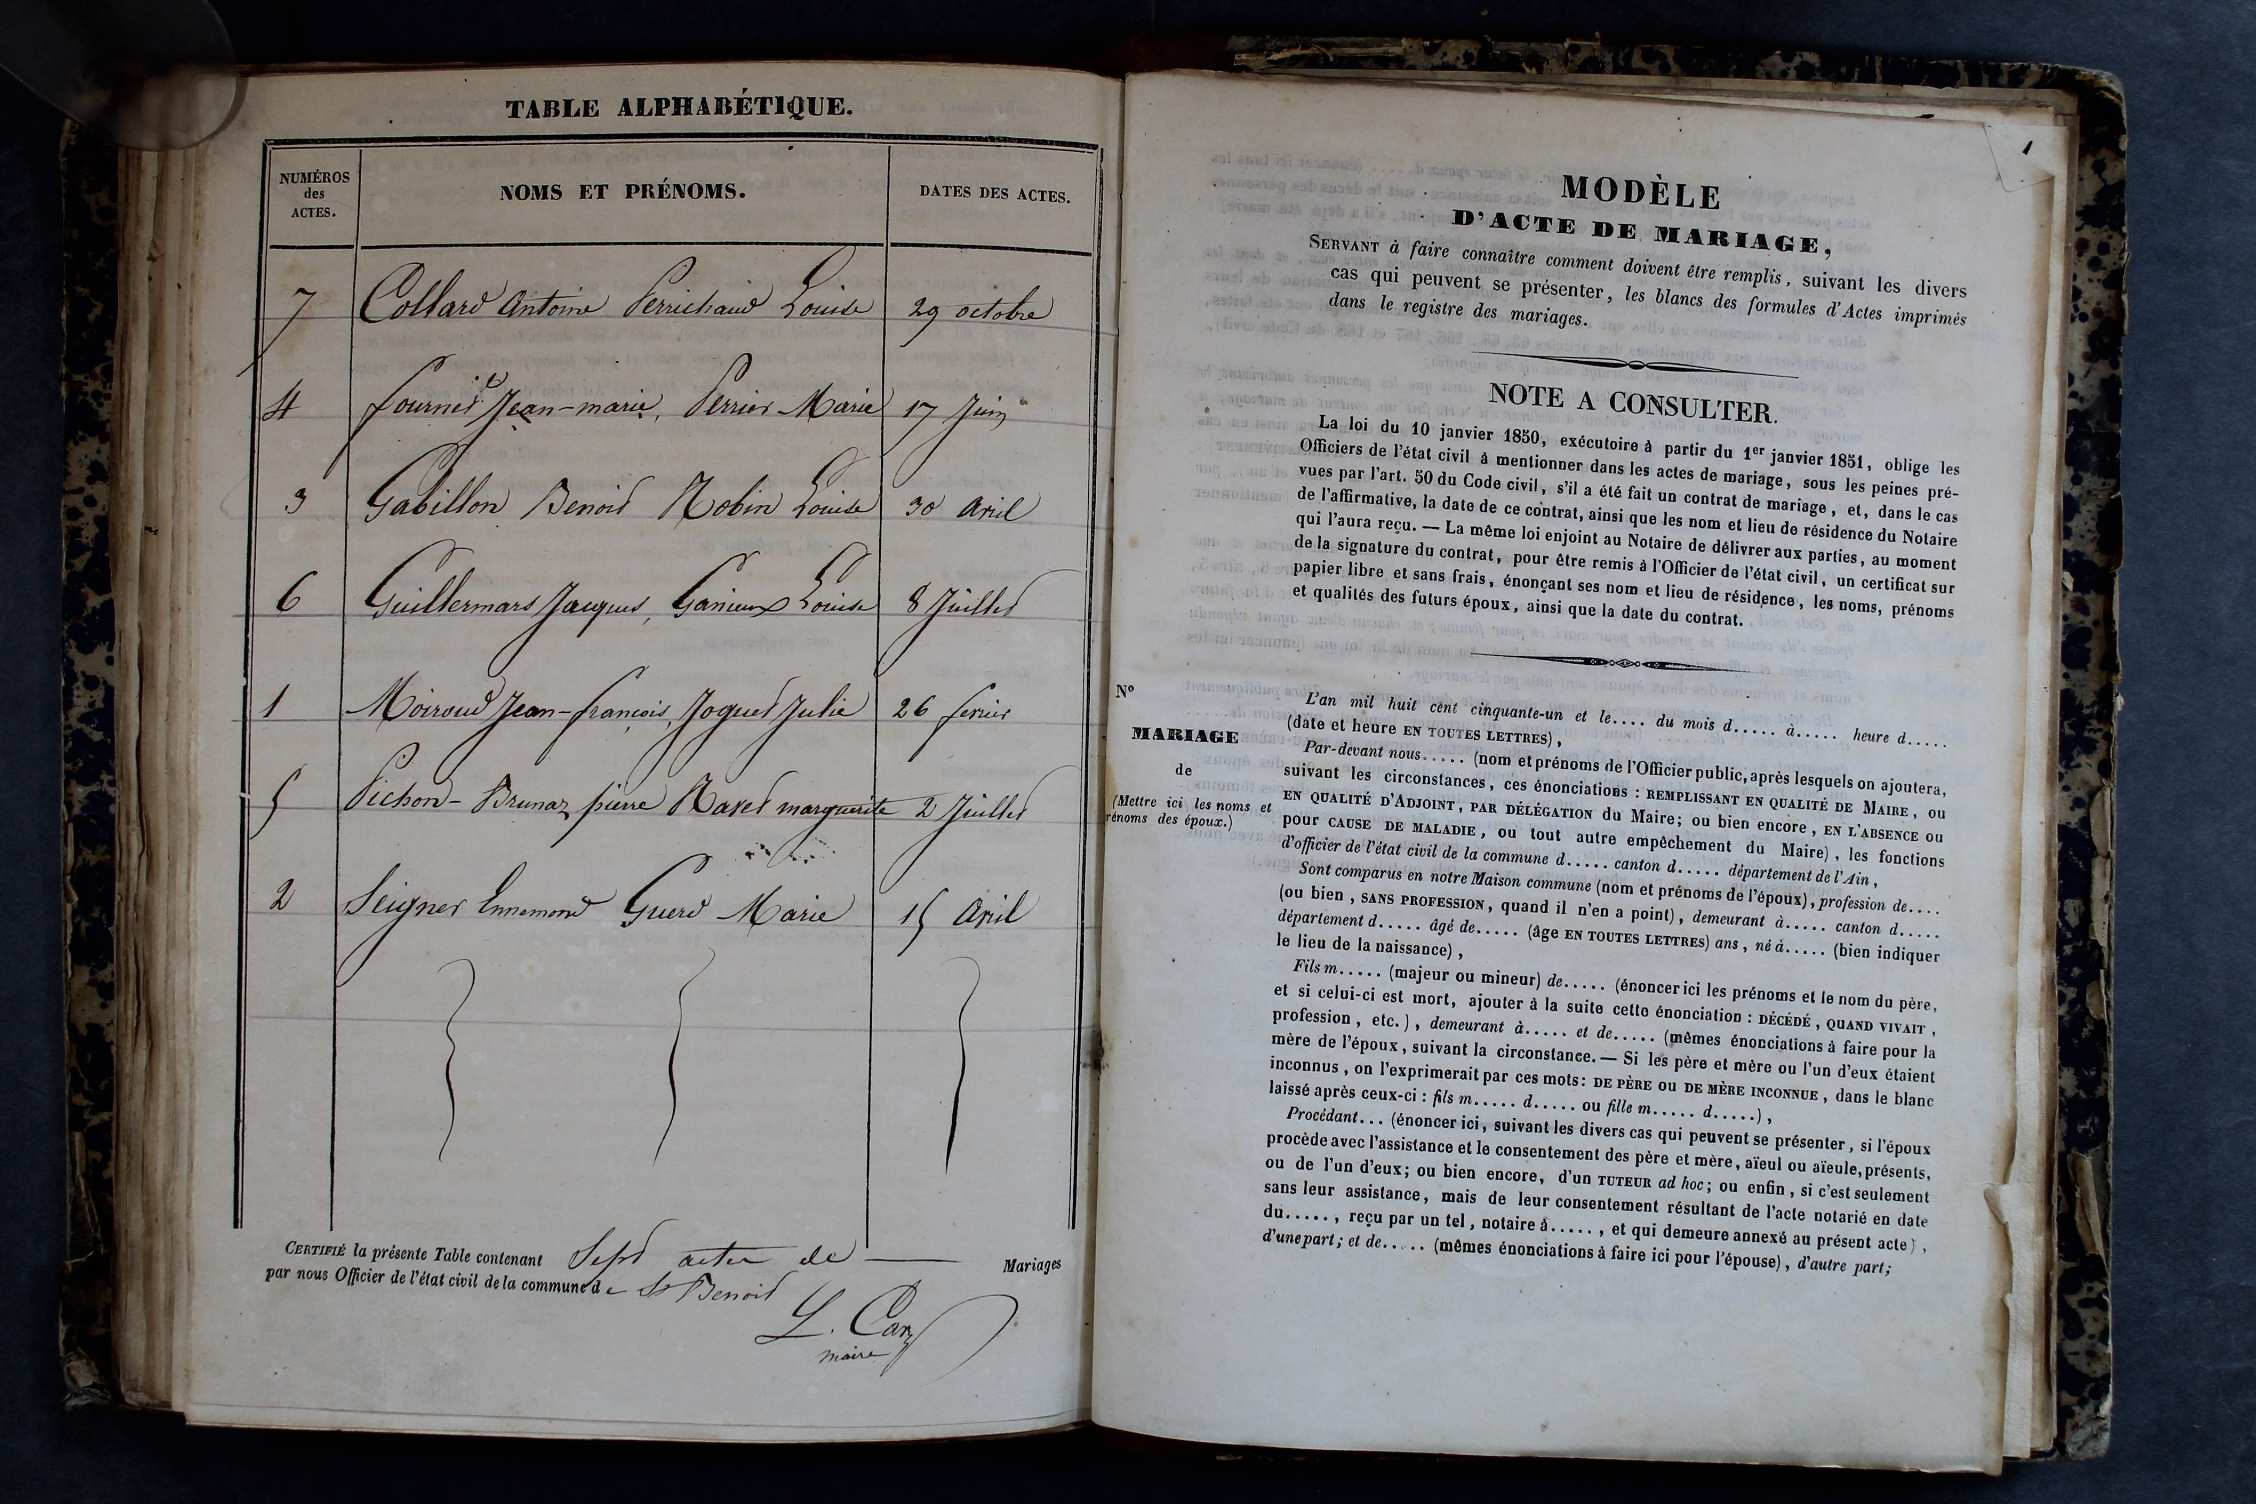 TABLE ALPHABÉTIQUE.
NUMÉROS
des
ACTES.
NOMS ET PRÉNOMS.
DATES DES ACTES.
7 Collard Antoine Perrichaud Louise 29 octobre
4 fournier Jean-marie, Perrier Marie 17 Juin
3 Gabillon Benoit Robin Louise 30 avril
6 Guillermars Jacques, Louise 8 Juillet
1 Moiroud Jean-françois, Joguet Julie 26 fevrier
5 Pichon-Brunaz pierre Ravet marguerite 2 Juillet
2 Seigner Ennemond Guerd Marie 15 avril
CERTIFIÉ la présente Table contenant Sept actes de Mariages
par nous Officier de l'état civil de la commune de St Benoit
L. Caz
maire
1
MODÈLE
D'ACTE DE MARIAGE,
SERVANT à faire connaître comment doivent être remplis, suivant les divers
cas qui peuvent se présenter, les blancs des formules d'Actes imprimés
dans le registre des mariages.
NOTE A CONSULTER.
La loi du 10 janvier 1850, exécutoire à partir du 1er janvier 1851, oblige les
Officiers de l'état civil à mentionner dans les actes de mariage, sous les peines pré-
vues par l'art. 50 du Code civil, s'il a été fait un contrat de mariage, et, dans le cas
de l'affirmative, la date de ce contrat, ainsi que les nom et lieu de résidence du Notaire
qui l'aura reçu. — La même loi enjoint au Notaire de délivrer aux parties, au moment
de la signature du contrat, pour être remis à l'Officier de l'état civil, un certificat sur
papier libre et sans frais, énonçant ses nom et lieu de résidence, les noms, prénoms
et qualités des futurs époux, ainsi que la date du contrat.
N°
MARIAGE
de
(Mettre ici les noms et
rénoms des époux.)
L'an mil huit cent cinquante-un et le.... du mois d..... à..... heure d.....
(date et heure EN TOUTES LETTRES),
Par-devant nous..... (nom et prénoms de l'Officier public, après lesquels on ajoutera,
suivant les circonstances, ces énonciations : REMPLISSANT EN QUALITÉ DE MAIRE, ou
EN QUALITÉ D'ADJOINT, PAR DÉLÉGATION du Maire; ou bien encore, EN L'ABSENCE ou
pour CAUSE DE MALADIE, ou tout autre empêchement du Maire), les fonctions
d'officier de l'état civil de la commune d..... canton d..... département de l'Ain,
Sont comparus en notre Maison commune (nom et prénoms de l'époux), profession de....
(ou bien, SANS PROFESSION, quand il n'en a point), demeurant à..... canton d.....
département d..... âgé de..... (âge EN TOUTES LETTRES) ans, né à..... (bien indiquer
le lieu de la naissance),
Fils m..... (majeur ou mineur) de..... (énoncer ici les prénoms et le nom du père,
et si celui-ci est mort, ajouter à la suite cette énonciation : DÉCÉDÉ, QUAND VIVAIT,
profession, etc.), demeurant à..... et de..... (mêmes énonciations à faire pour la
mère de l'époux, suivant la circonstance. — Si les père et mère ou l'un d'eux étaient
inconnus, on l'exprimerait par ces mots : DE PÈRE ou DE MÈRE INCONNUE, dans le blanc
laissé après ceux-ci : fils m..... d..... ou fille m..... d.....),
Procédant... (énoncer ici, suivant les divers cas qui peuvent se présenter, si l'époux
procède avec l'assistance et le consentement des père et mère, aïeul ou aïeule, présents,
ou de l'un d'eux; ou bien encore, d'un TUTEUR ad hoc; ou enfin, si c'est seulement
sans leur assistance, mais de leur consentement résultant de l'acte notarié en date
du....., reçu par un tel, notaire à....., et qui demeure annexé au présent acte),
d'une part; et de..... (mêmes énonciations à faire ici pour l'épouse), d'autre part;